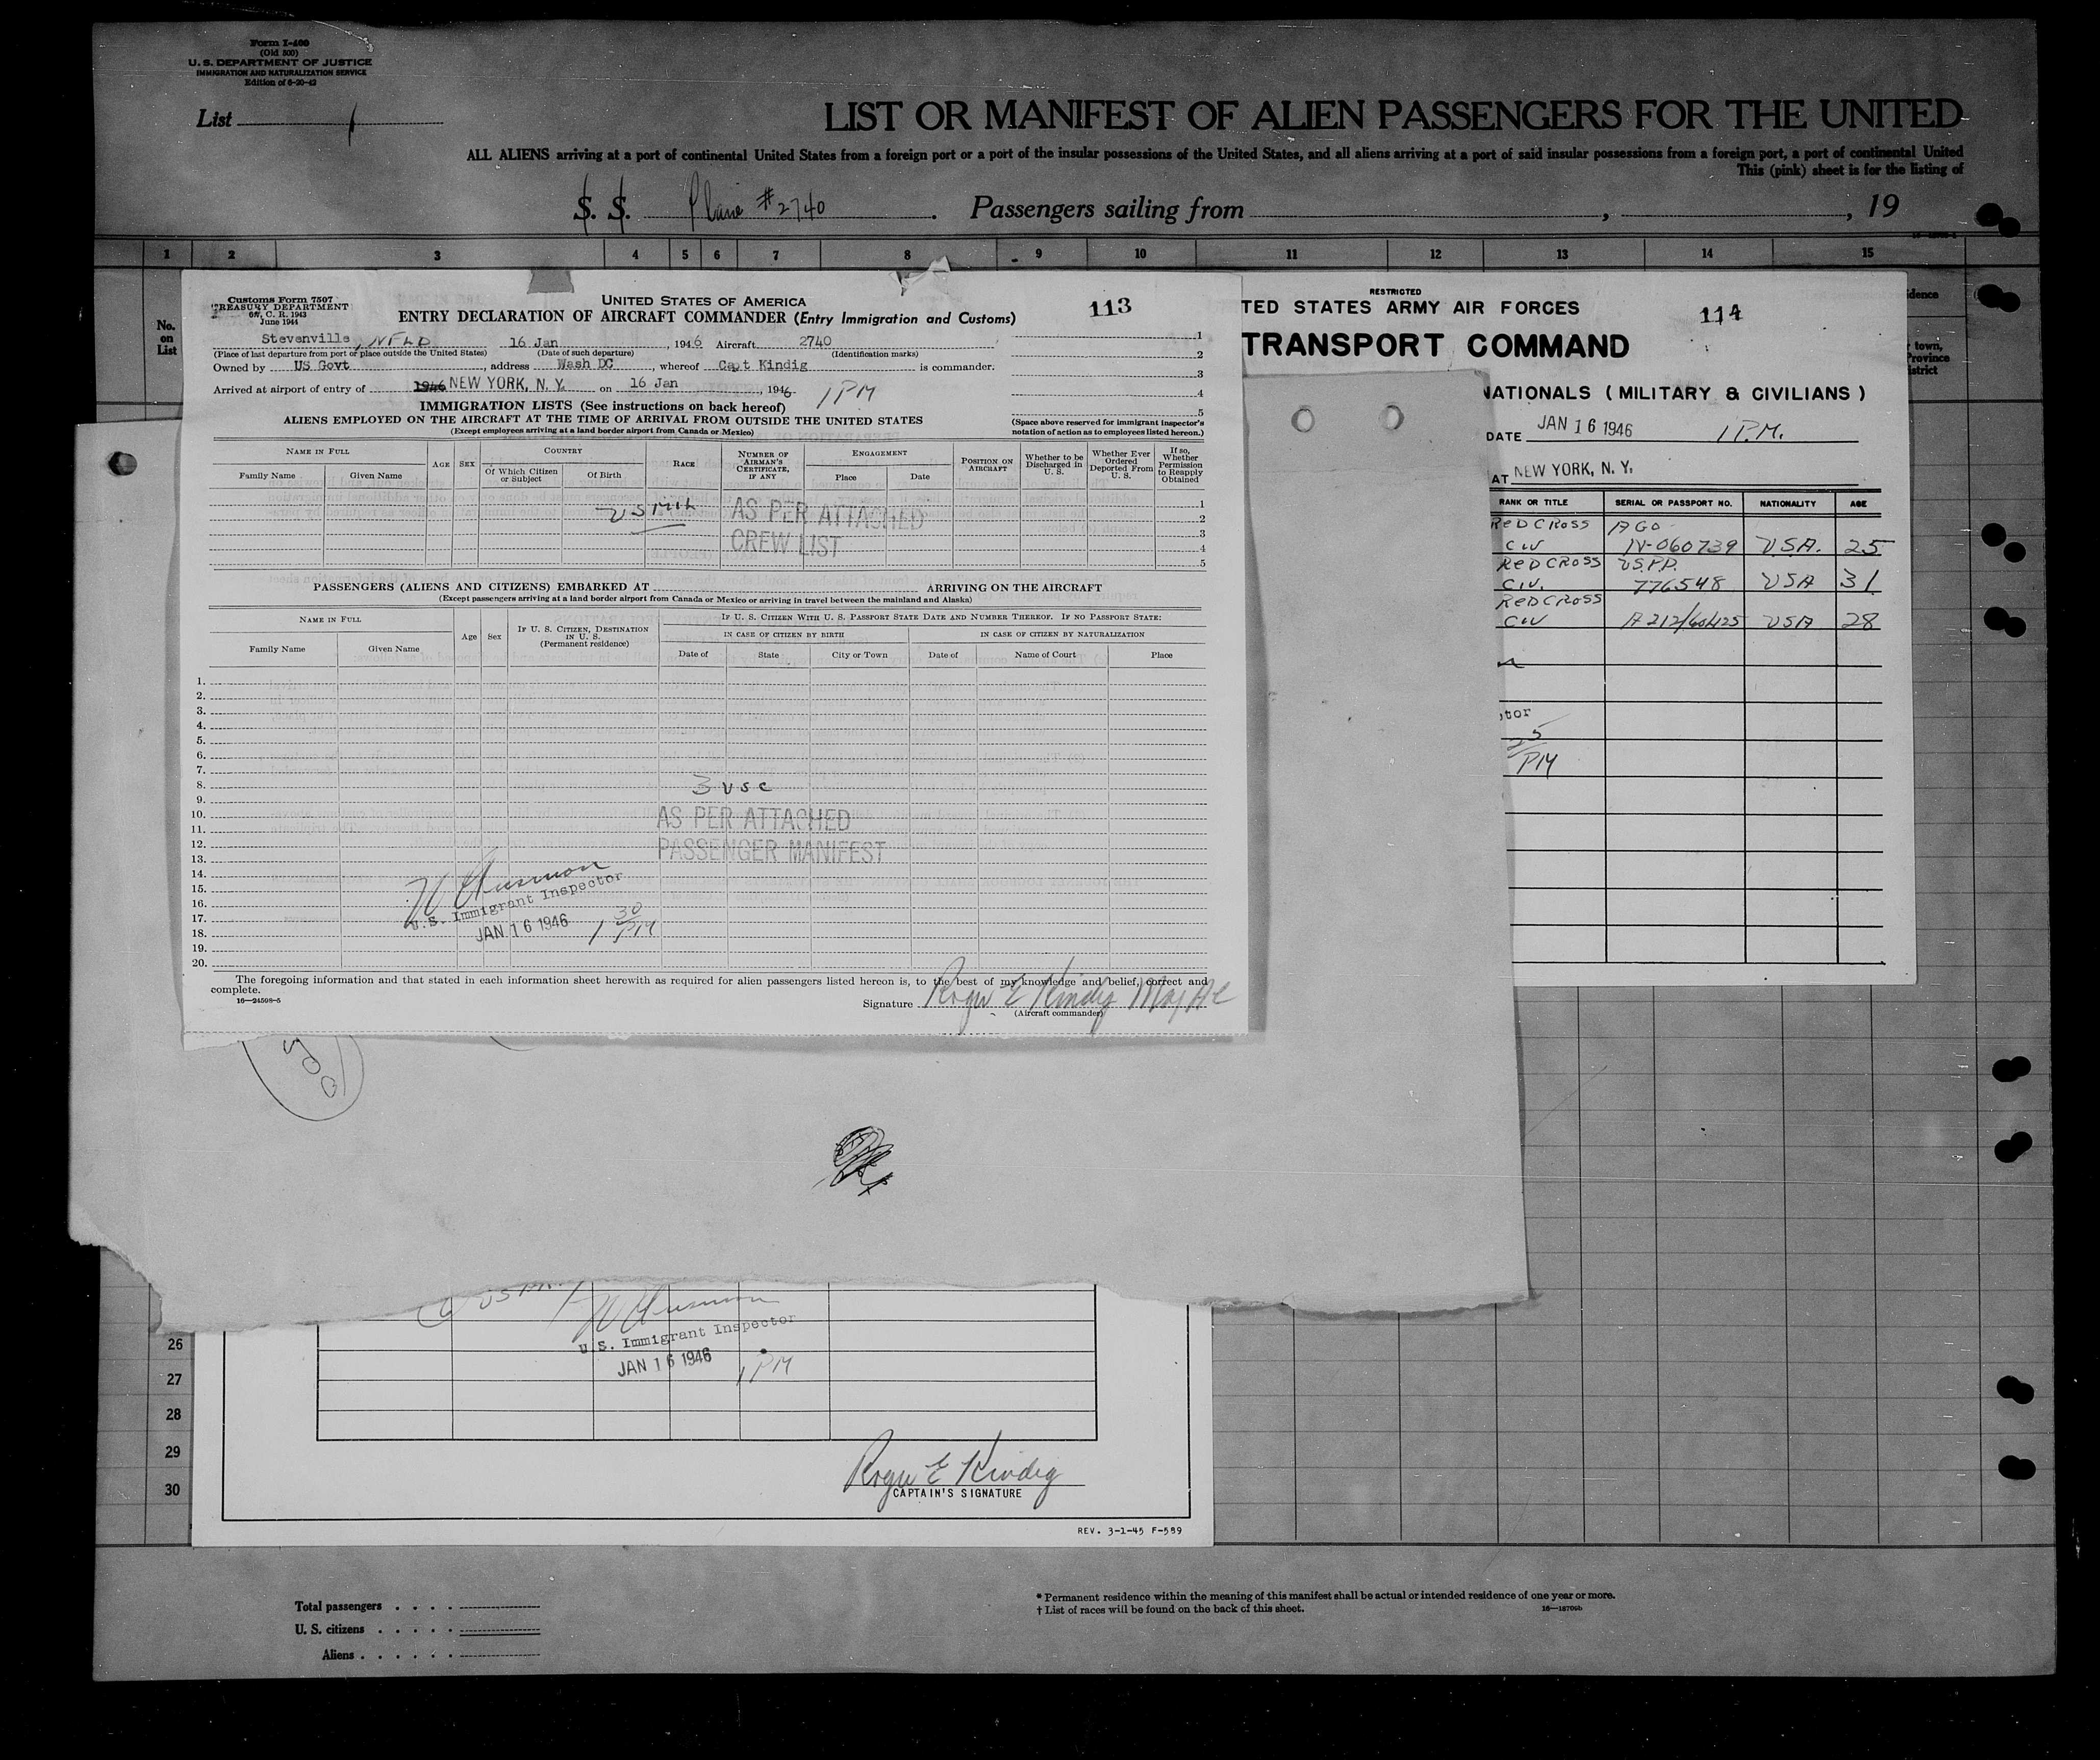 Form I-400
(Old 500)
U. S. DEPARTMENT OF JUSTICE
IMMIGRATION AND NATURALIZATION SERVICE
Edition of 6-20-43
List 1
LIST OR MANIFEST OF ALIEN PASSENGERS FOR THE UNITED
ALL ALIENS arriving at a port of continental United States from a foreign port or a port of the insular possessions of the United States, and all aliens arriving at a port of said insular possessions from a foreign port, a port of continental United
This (pink) sheet is for the listing of
S. S. Plane #2740 . Passengers sailing from , , 19
1 2 3 4 5 6 7 8 9 10 11 12 13 14 15
No.
on
List
Customs Form 7507
TREASURY DEPARTMENT
C. R. 1943
June 1944
UNITED STATES OF AMERICA
113
ENTRY DECLARATION OF AIRCRAFT COMMANDER (Entry Immigration and Customs)
Stevenville, NFLD 16 Jan , 1946 Aircraft 2740
(Place of last departure from port or place outside the United States) (Date of such departure) (Identification marks)
Owned by US Govt , address Wash DC , whereof Capt Kindig is commander.
Arrived at airport of entry of NEW YORK, N. Y. on 16 Jan , 1946 1 PM
1
2
3
4
5
IMMIGRATION LISTS (See instructions on back hereof)
ALIENS EMPLOYED ON THE AIRCRAFT AT THE TIME OF ARRIVAL FROM OUTSIDE THE UNITED STATES
(Except employees arriving at a land border airport from Canada or Mexico)
(Space above reserved for immigrant inspector's
notation of action as to employees listed hereon.)
NAME IN FULL
Family Name Given Name
AGE SEX
COUNTRY
Of Which Citizen or Subject
Of Birth
RACE
NUMBER OF AIRMAN'S CERTIFICATE, IF ANY
ENGAGEMENT
Place Date
POSITION ON AIRCRAFT
Whether to be Discharged in U. S.
Whether Ever Ordered Deported From U. S.
If so, Whether Permission to Reapply Obtained
US Mil
AS PER ATTACHED
CREW LIST
1
2
3
4
5
PASSENGERS (ALIENS AND CITIZENS) EMBARKED AT ARRIVING ON THE AIRCRAFT
(Except passengers arriving at a land border airport from Canada or Mexico or arriving in travel between the mainland and Alaska)
NAME IN FULL
Family Name Given Name
Age Sex
IF U. S. CITIZEN, DESTINATION IN U. S.
(Permanent residence)
IF U. S. CITIZEN WITH U. S. PASSPORT STATE DATE AND NUMBER THEREOF. IF NO PASSPORT STATE:
IN CASE OF CITIZEN BY BIRTH IN CASE OF CITIZEN BY NATURALIZATION
Date of State City or Town Date of Name of Court Place
1.
2.
3.
4.
5.
6.
7.
8.
9.
10.
11.
12.
13.
14.
15.
16.
17.
18.
19.
20.
3 USC
AS PER ATTACHED
PASSENGER MANIFEST
U.S. Immigrant Inspector
JAN 16 1946 1 30 PM
The foregoing information and that stated in each information sheet herewith as required for alien passengers listed hereon is, to the best of my knowledge and belief, correct and
complete.
16—24598-5
Signature Roger E Kindig Maj AC
(Aircraft commander)
RESTRICTED
TED STATES ARMY AIR FORCES
114
TRANSPORT COMMAND
NATIONALS ( MILITARY & CIVILIANS )
DATE JAN 16 1946 1 P.M.
AT NEW YORK, N. Y.
RANK OR TITLE SERIAL OR PASSPORT NO. NATIONALITY AGE
RED CROSS AGO
CIV IV-060739 U.S.A. 25
RED CROSS US.PP.
CIV. 776548 USA 31
RED CROSS
CIV USA 28
tor
PM
idence
town,
Province
strict
US Mil
U.S. Immigrant Inspector
JAN 16 1946
1 PM
26
27
28
29
30
Roger E Kindig
CAPTAIN'S SIGNATURE
REV. 3-1-45 F-559
Total passengers . . . .
U. S. citizens . . . . .
Aliens . . . . . .
* Permanent residence within the meaning of this manifest shall be actual or intended residence of one year or more.
† List of races will be found on the back of this sheet.